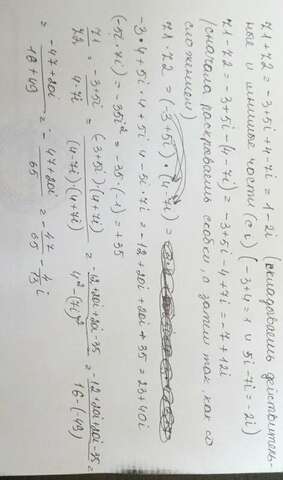 z1+z2=-3+5i+4-7i=1-2i (складываешь действитель-
ные и мнимые части (с i) (-3+4=1 и 5i-7i=-2i)
z1-z2=-3+5i-(4-7i)=-3+5i-4+7i=-7+12i
(сначала раскрываешь скобки, а затем так как со
сложением)
z1·z2=(-3+5i)·(4-7i)=
-3·4+5i·4+5i·4-5i·7i=-12+20i+20i+35=23+40i
(-5i·7i)=-35i²=-35·(-1)=+35
z1/z2 = -3+5i/4-7i = (-3+5i)(4+7i)/(4-7i)·(4+7i) = -12+20i+20i-35/4²-(7i)² = -12+20i+20i-35/16-(-49) =
= -47+20i/16+49 = -47+20i/65 = -47/65 - 4/13 i